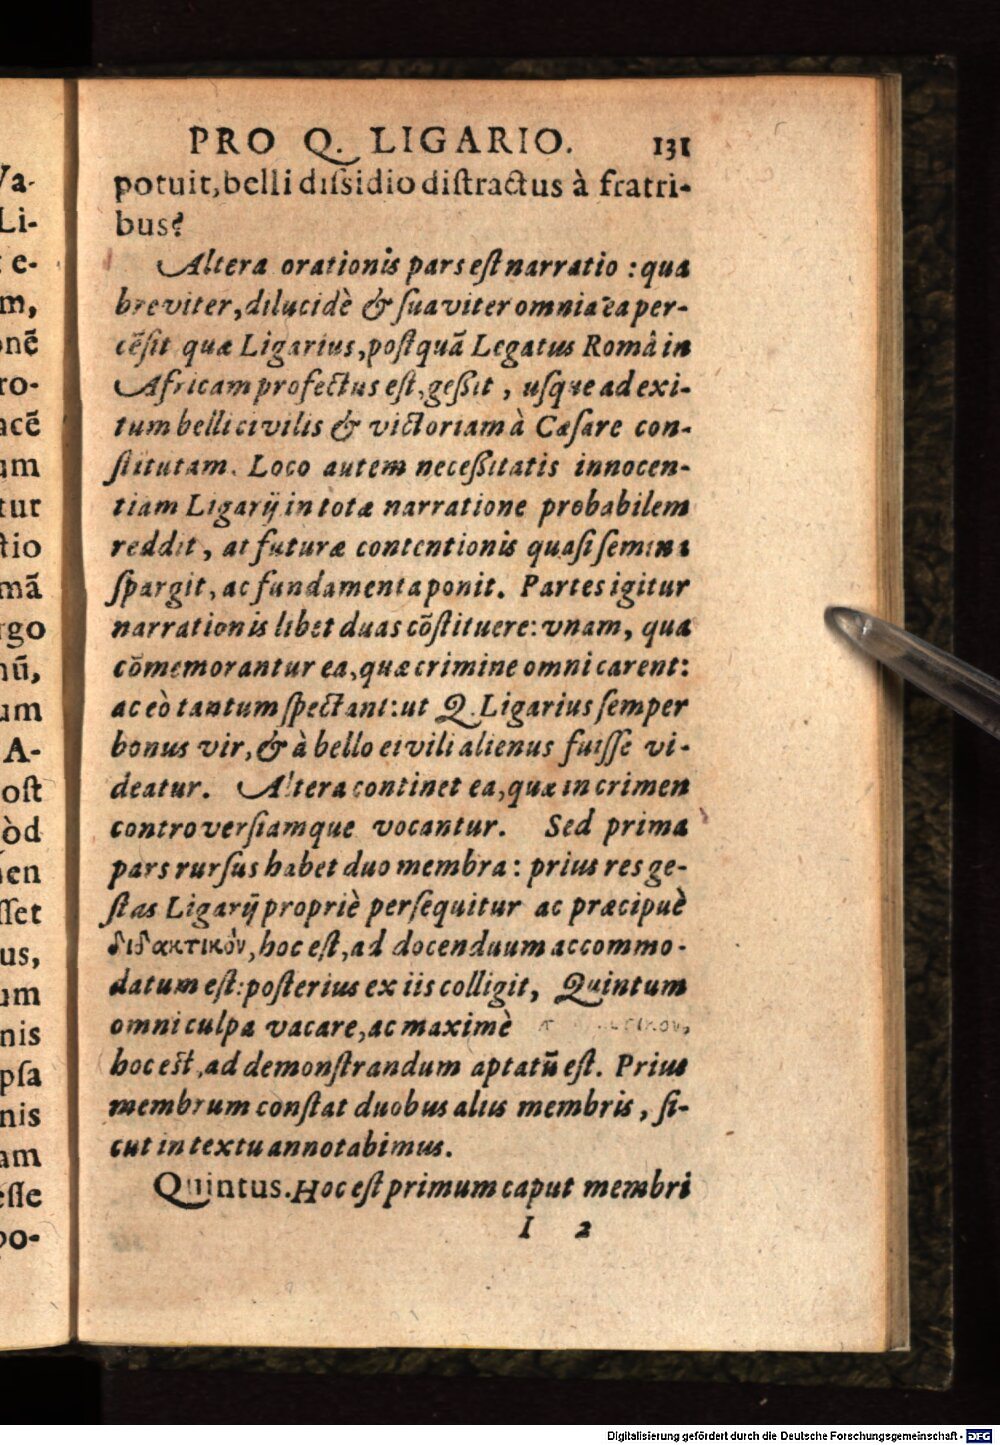 PRO Q. LIGARIO. 131
potuit, belli dissidio distractus à fratri-
bus?
Altera orationis pars est narratio : qua
breviter, dilucidè & suaviter omnia ea per-
cẽsit quæ Ligarius, postquã Legatus Româ in
Africam profectus est, gessit, usque ad exi-
tum belli civilis & victoriam à Cæsare con-
stitutam. Loco autem necessitatis innocen-
tiam Ligarij in totæ narratione probabilem
reddit, at futuræ contentionis quasi semina
spargit, ac fundamenta ponit. Partes igitur
narrationis libet duas cõstituere: vnam, qua
cõmemorantur ea, quæ crimine omni carent:
ac eò tantum spectant: ut Q. Ligarius semper
bonus vir, & à bello civili alienus fuisse vi-
deatur. Altera continet ea, quæ in crimen
controversiamque vocantur. Sed prima
pars rursus habet duo membra: prius res ge-
stas Ligarij propriè persequitur ac præcipuè
διδακτικὸν, hoc est, ad docenduum accommo-
datum est: posterius ex iis colligit, Quintum
omni culpa vacare, ac maximè
hoc est, ad demonstrandum aptatũ est. Prius
membrum constat duobus alius membris, si-
cut in textu annotabimus.
Quintus. Hoc est primum caput membri
I 2
Va-
Li-
e-
m,
onẽ
ro-
acẽ
um
tur
tio
mã
rgo
nũ,
um
A-
ost
òd
nen
sset
us,
um
nis
psa
nis
am
esse
po-
Digitalisierung gefördert durch die Deutsche Forschungsgemeinschaft - DFG